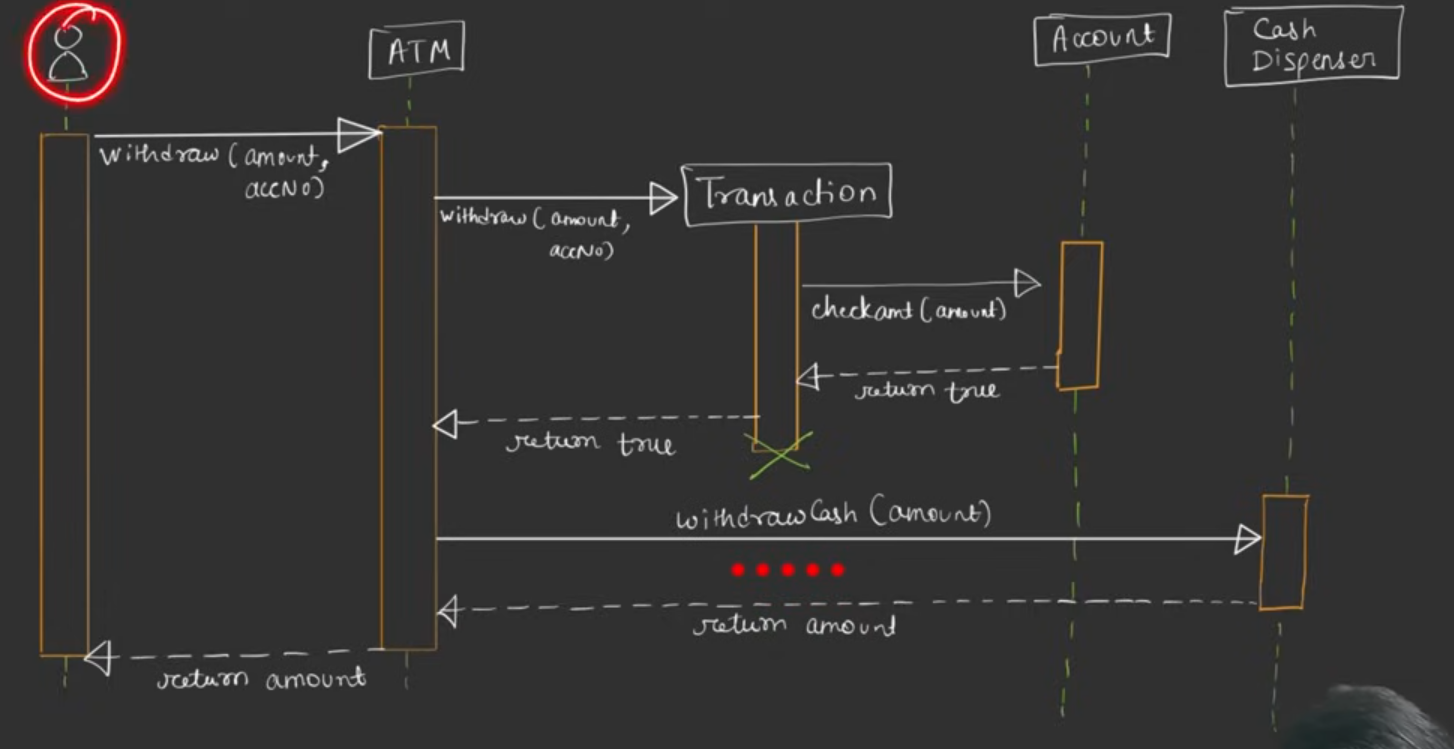 ATM
Account
Cash
Dispenser
withdraw (amount,
accNo)
Transaction
withdraw (amount,
accNo)
checkamt (amount)
return true
return true
withdrawCash (amount)
return amount
return amount